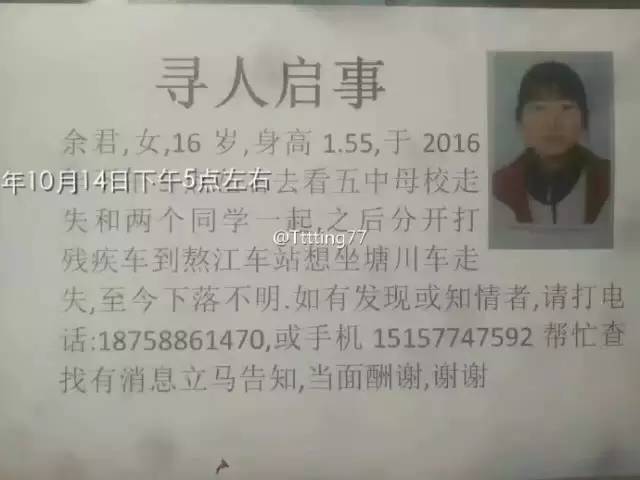 寻人启事
余君,女,16岁,身高1.55,于2016
年10月14日下午5点左右
去看五中母校走
失和两个同学一起,之后分开打
@Tttting77
残疾车到熬江车站想坐塘川车走
失,至今下落不明.如有发现或知情者,请打电
话:18758861470,或手机15157747592帮忙查
找有消息立马告知,当面酬谢,谢谢